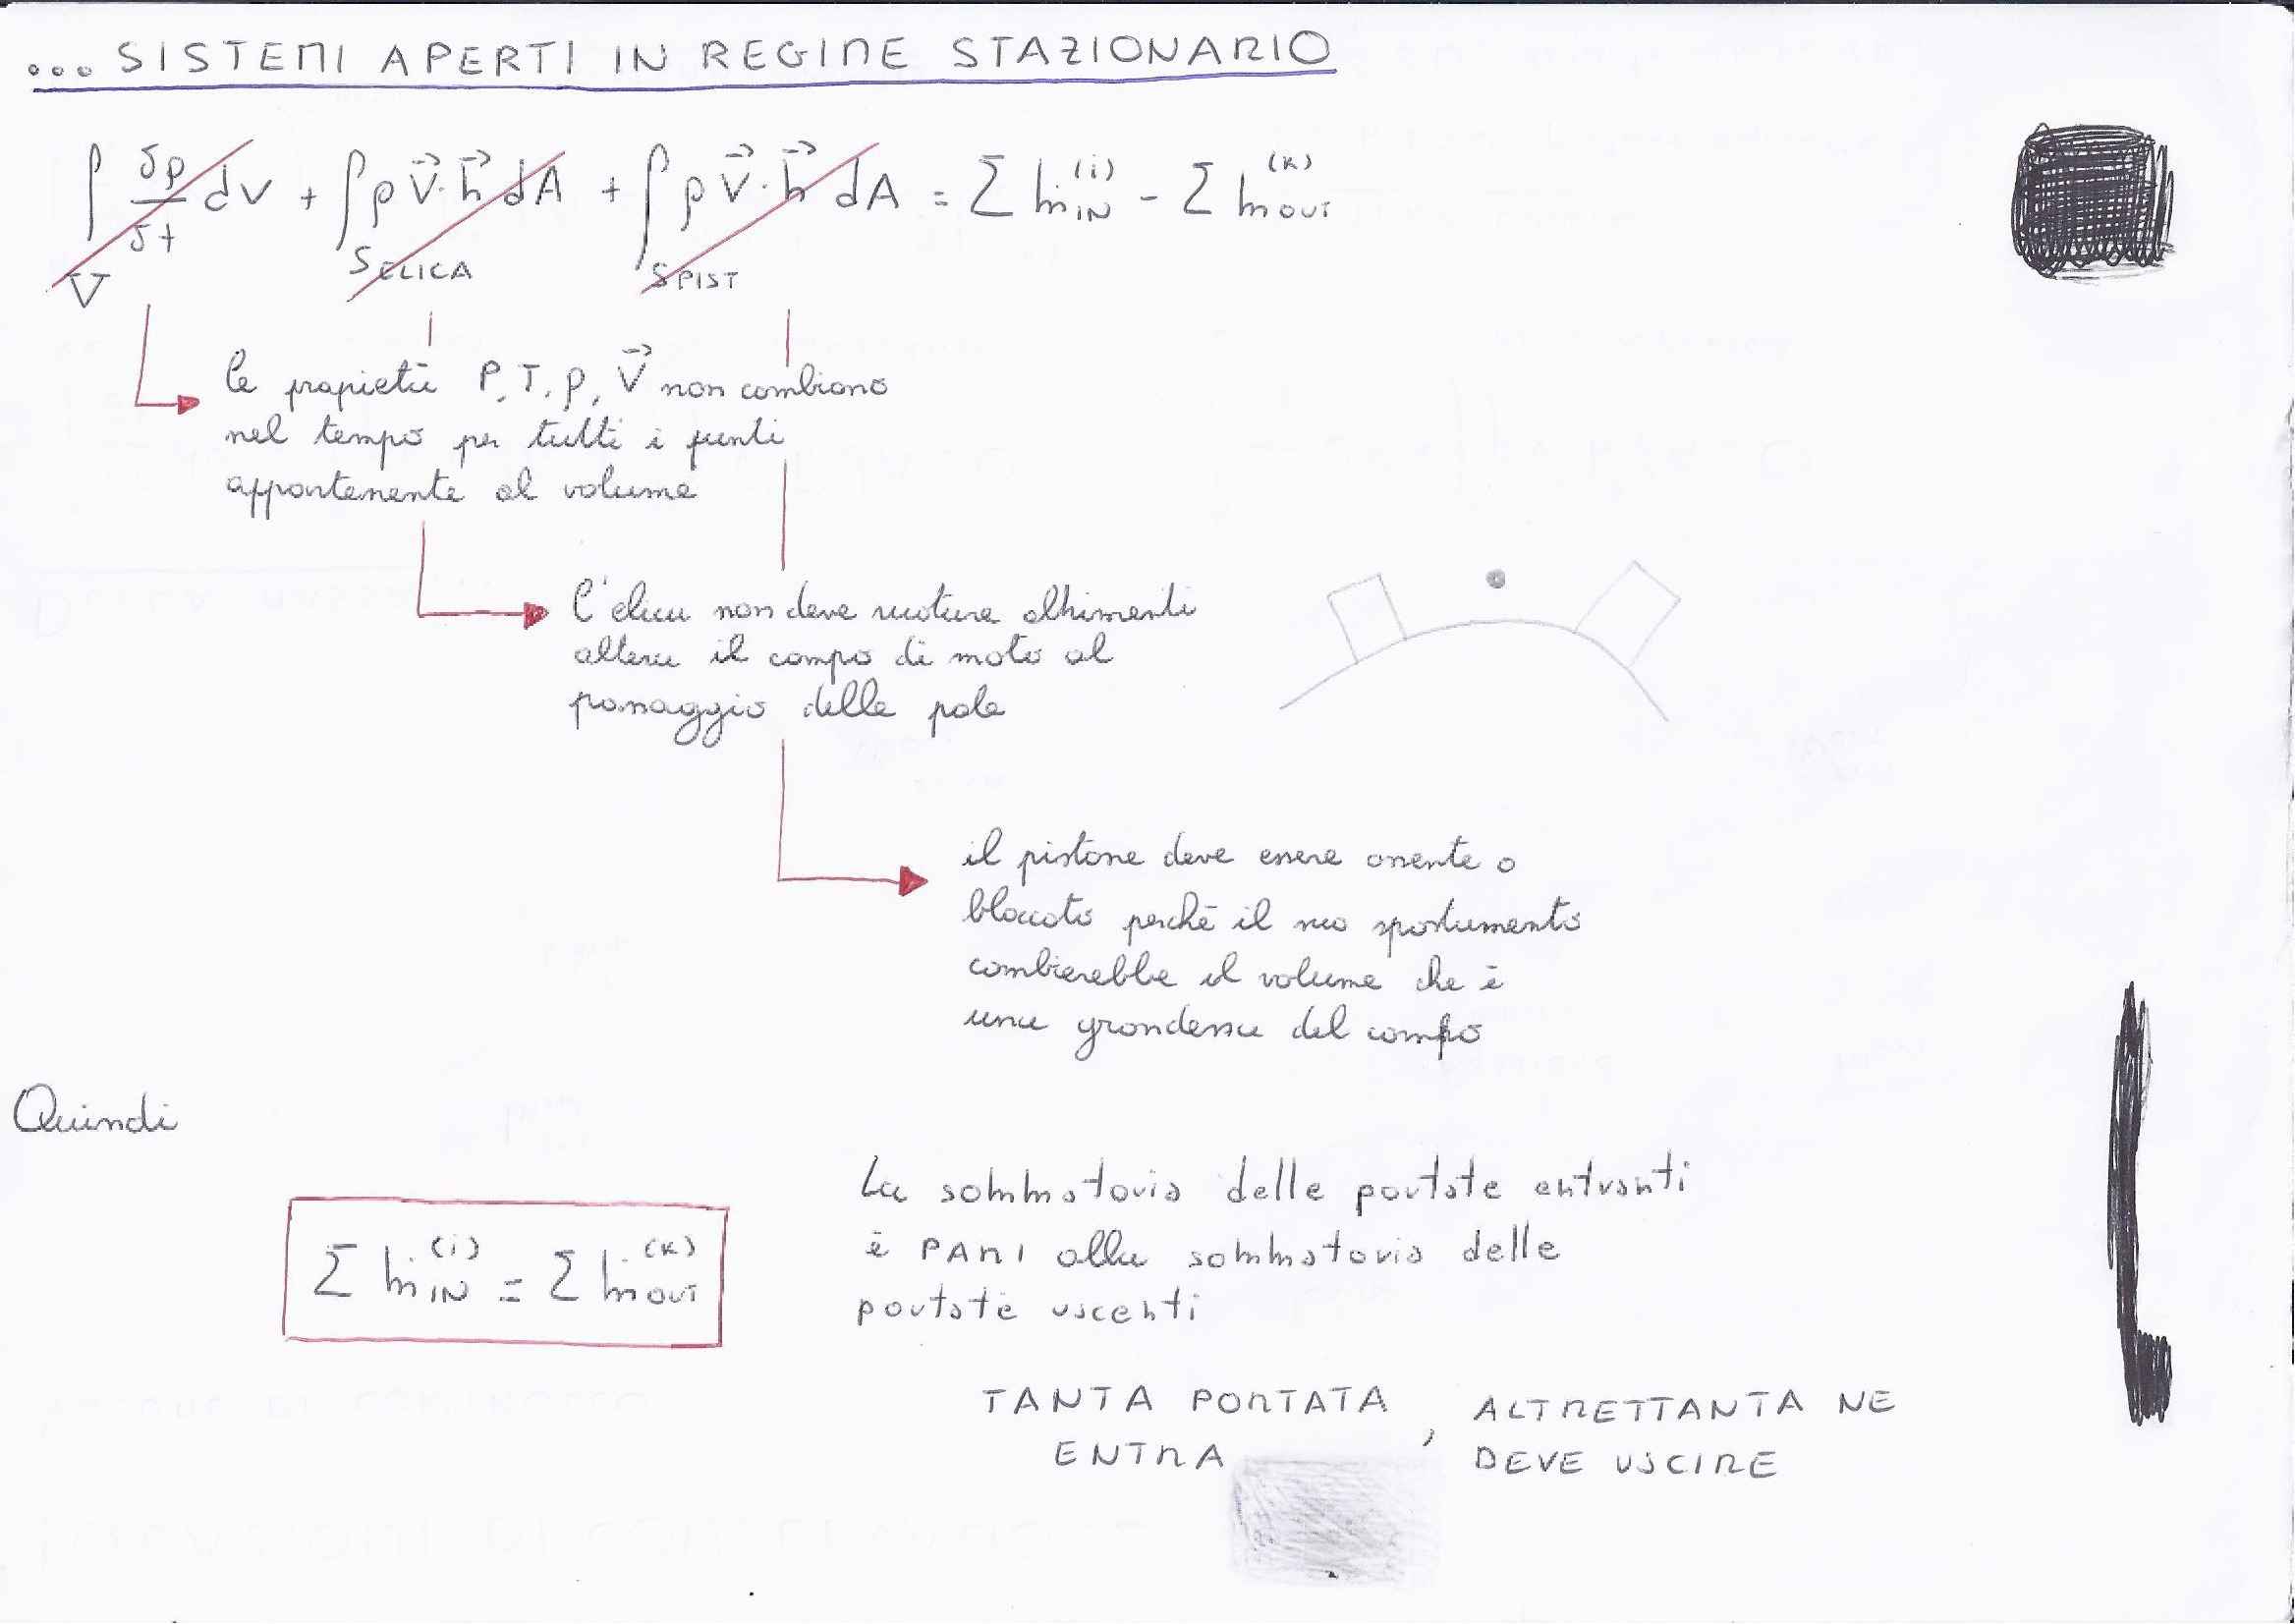 ... SISTEMI APERTI IN REGIME STAZIONARIO
∫_V δρ/δt dV + ∫_{S ELICA} ρ V⃗ · n⃗ dA + ∫_{S PIST} ρ V⃗ · n⃗ dA = Σ ṁ_IN^(i) - Σ ṁ_OUT^(k)
le propietà P, T, ρ, V⃗ non cambiano
nel tempo per tutti i punti
appartenente al volume
L'elica non deve ruotare altrimenti
altera il campo di moto al
passaggio delle pale
il pistone deve essere assente o
bloccato perchè il suo spostamento
cambierebbe il volume che è
una grandezza del campo
Quindi
Σ ṁ_IN^(i) = Σ ṁ_OUT^(k)
La sommatoria delle portate entranti
è PARI alla sommatoria delle
portate uscenti
TANTA PORTATA ENTRA , ALTRETTANTA NE DEVE USCIRE